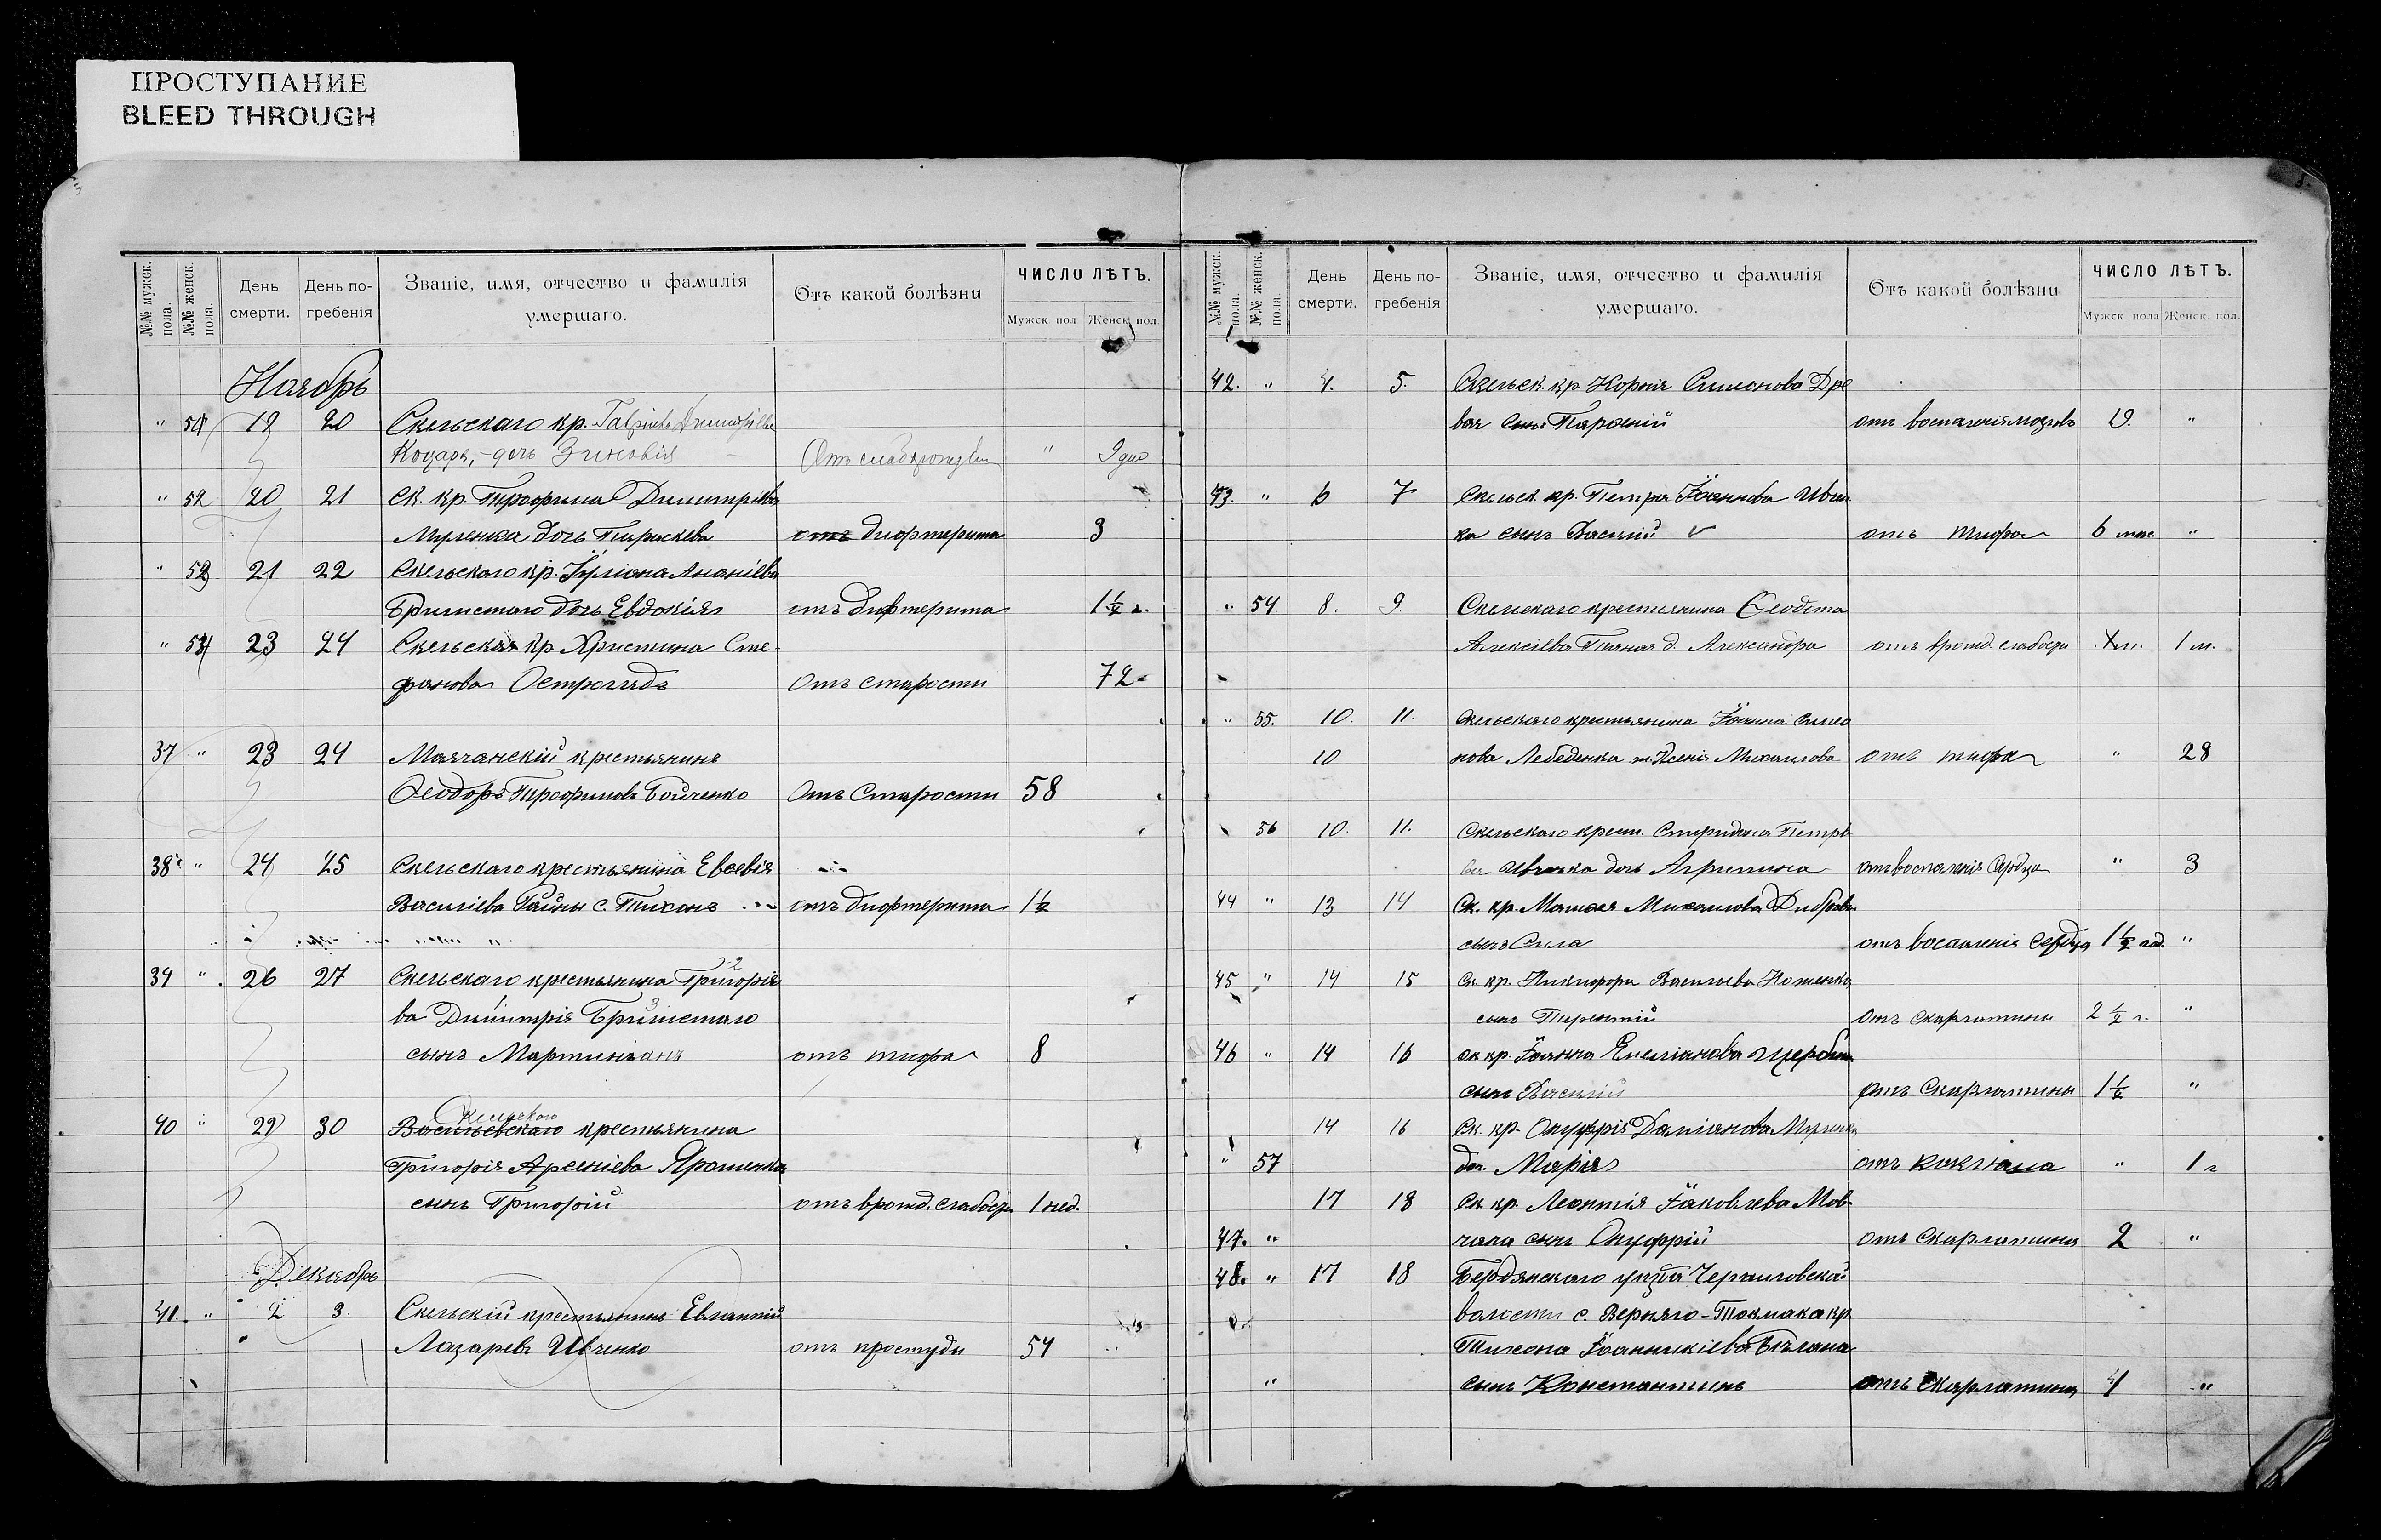 ПРОСТУПАНИЕ
BLEED THROUGH
№№ мужск. пола.
№№ женск. пола.
День смерти.
День погребенія
Званіе, имя, отчество и фамилія умершаго.
Отъ какой болѣзни
ЧИСЛО ЛѢТЪ.
Мужск. пол Женск. пол.
Ноябрь
" 51 19 20 Скельскаго кр.
Козаря, дочь Зиновія " 9 дно
" 52 20 21 Ск. кр. Трофима Димитріева
дочь Параскева отъ дифтерита 3
" 53 21 22 Скельскаго кр. Іуліана Ананіева
дочь Евдокія отъ дифтерита 1½ г.
" 54 23 24 Скельская кр. Христина Сте-
фанова Остроглядъ Отъ старости 72
37 " 23 24 Маячанскій крестьянинъ
Ѳеодоръ Трофимовъ Бойченко Отъ Старости 58
38 " 24 25 Скельскаго крестьянина Евсевія
Василіева с. Тихонъ отъ дифтерита 1½
39 " 26 27 Скельскаго крестьянина Григорія
ва Димитрія
сынъ отъ тифа 8
Скельскаго
40 " 29 30 Васильевскаго крестьянина
Григорія Арсеніева Ярошенка
сынъ Григорій отъ врожд. слабости 1 нед.
Декабрь
41. " 2 3. Скельскій крестьянинъ Евлампій
Лазаревъ Ивченко отъ простуды 54 "
№№ мужск. пола.
№№ женск. пола.
День смерти.
День погребенія
Званіе, имя, отчество и фамилія умершаго.
Отъ какой болѣзни
ЧИСЛО ЛѢТЪ.
Мужск. пола Женск. пол.
42. " 4. 5. Скельск. кр. Корнія Симонова Дре
вая сынъ отъ воспаленія мозговъ "
43. " 6 7 Скельск. кр. Петра Іоаннова Ивчен
ка сынъ Василій отъ тифа 6 мес. "
" 54 8. 9. Скельскаго крестьянина Ѳеодота
Алексіева д. Александра отъ врожд. слабости 1 м.
" 55. 10. 11. Скельскаго крестьянина Іоанна Симео
10 нова Лебеденка ж. Ксенія Михаилова отъ тифа " 28
56 10. 11. Скельскаго крест. Спиридона Петро
ва Ивченка дочь Агрипина отъ воспаленія сердца " 3
44 " 13 14 Ск. кр. Михаилова
сынъ Сила отъ воспаленія сердца 1½ год. "
45 " 14 15 Ск. кр. Никифора Васильева Ноженка
сынъ Терентій отъ скарлатины 2½ г. "
46 " 14 16 ск кр. Іоанна Емеліанова
сынъ Василій отъ Скарлатины 1½ "
14 16 Ск. кр. Онуфрія Даміанова
" 57 доч. Марія отъ коклюша " 1 г
17 18 Ск кр. Леонтія Іаковлева Мов-
47. " чана сынъ Онуфрій отъ Скарлатины 2 "
48. " 17 18 Бердянскаго уѣзда Черниговской
волости с. Верняго-Токмака кр.
Тихона Іоанникіева Бѣлана
" сынъ Константинъ отъ Скарлатины 4 "